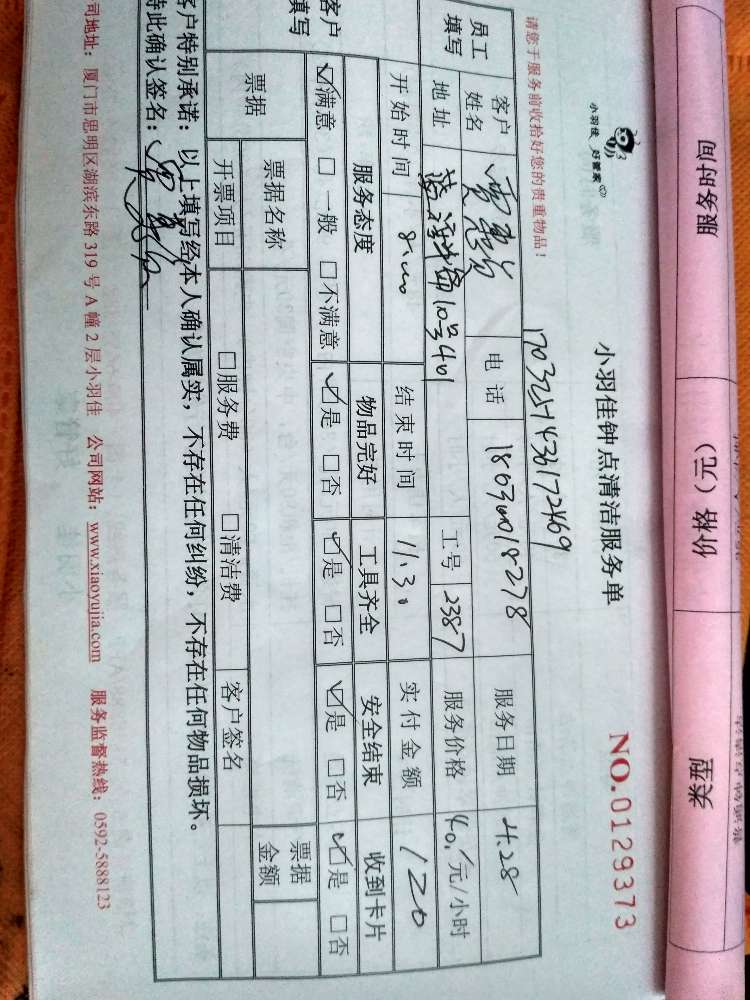 服务时间 价格（元） 类型
小羽佳 好管家
小羽佳钟点清洁服务单
NO.0129373
请您于服务前收拾好您的贵重物品！
员工填写 客户姓名 电话 服务日期 4.28
地址 10号401 工号 2387 服务价格 40.元/小时
开始时间 8:00 结束时间 11:30 实付金额 120
客户填写 服务态度 物品完好 工具齐全 安全结束 收到卡片
☑满意 □一般 □不满意 ☑是 □否 ☑是 □否 ☑是 □否 ☑是 □否
票据 票据名称 票据金额
开票项目 □服务费 □清洁费 客户签名
客户特别承诺：以上填写经本人确认属实，不存在任何纠纷，不存在任何物品损坏。
特此确认签名：
司地址：厦门市思明区湖滨东路 319 号 A 幢 2 层小羽佳 公司网站：www.xiaoyujia.com 服务监督热线：0592-5888123